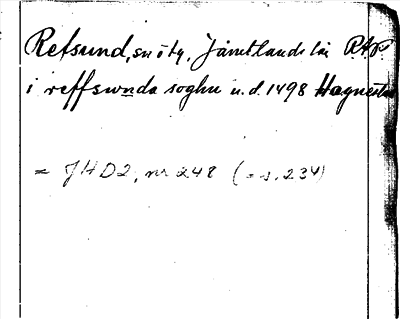 Refsund, sn o tg, Jämtlands län RAP
i reffswnda soghn u.d. 1498
= JHD2, nr 248 (= s. 234)